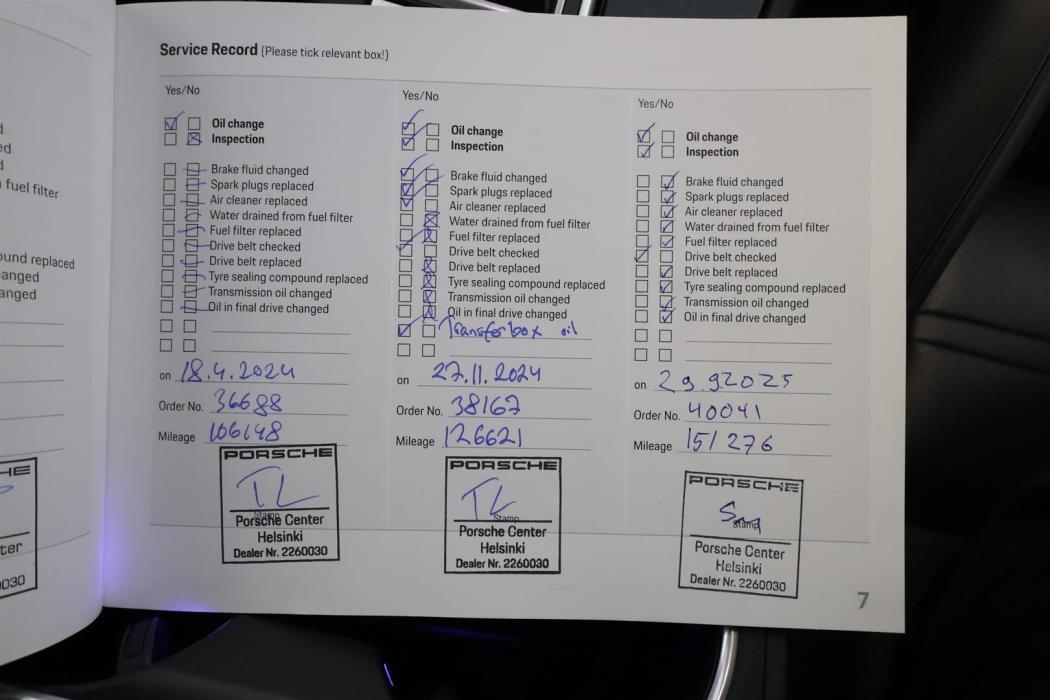 fuel filter
ound replaced
anged
anged
ter
030
Service Record (Please tick relevant box!)
Yes/No
Oil change
Inspection
Brake fluid changed
Spark plugs replaced
Air cleaner replaced
Water drained from fuel filter
Fuel filter replaced
Drive belt checked
Drive belt replaced
Tyre sealing compound replaced
Transmission oil changed
Oil in final drive changed
on 18.4.2024
Order No. 36688
Mileage 106148
PORSCHE
TL
Stamp
Porsche Center
Helsinki
Dealer Nr. 2260030
Yes/No
Oil change
Inspection
Brake fluid changed
Spark plugs replaced
Air cleaner replaced
Water drained from fuel filter
Fuel filter replaced
Drive belt checked
Drive belt replaced
Tyre sealing compound replaced
Transmission oil changed
Oil in final drive changed
Transferbox oil
on 27.11.2024
Order No. 38167
Mileage 126621
PORSCHE
TL
Stamp
Porsche Center
Helsinki
Dealer Nr. 2260030
Yes/No
Oil change
Inspection
Brake fluid changed
Spark plugs replaced
Air cleaner replaced
Water drained from fuel filter
Fuel filter replaced
Drive belt checked
Drive belt replaced
Tyre sealing compound replaced
Transmission oil changed
Oil in final drive changed
on 29.92025
Order No. 40041
Mileage 151276
PORSCHE
Stamp
Porsche Center
Helsinki
Dealer Nr. 2260030
7